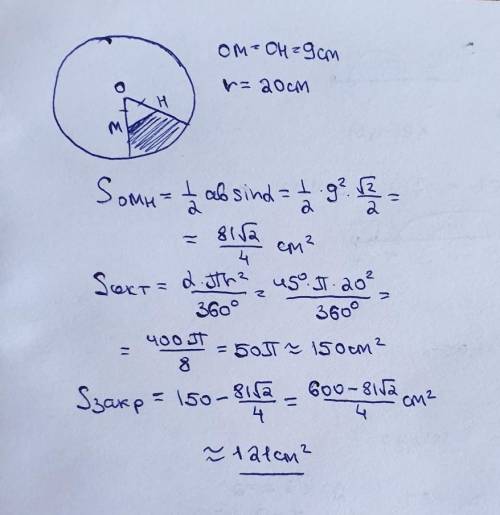 O
H
M
OM = OH = 9 см
r = 20 см
S OMH = 1/2 ab sinα = 1/2 · 9² · √2/2 =
= 81√2/4 см²
Sсект = α · πr²/360° = 45° · π · 20²/360° =
= 400π/8 = 50π ≈ 150 см²
Sзакр = 150 − 81√2/4 = 600 − 81√2/4 см²
≈ 121 см²